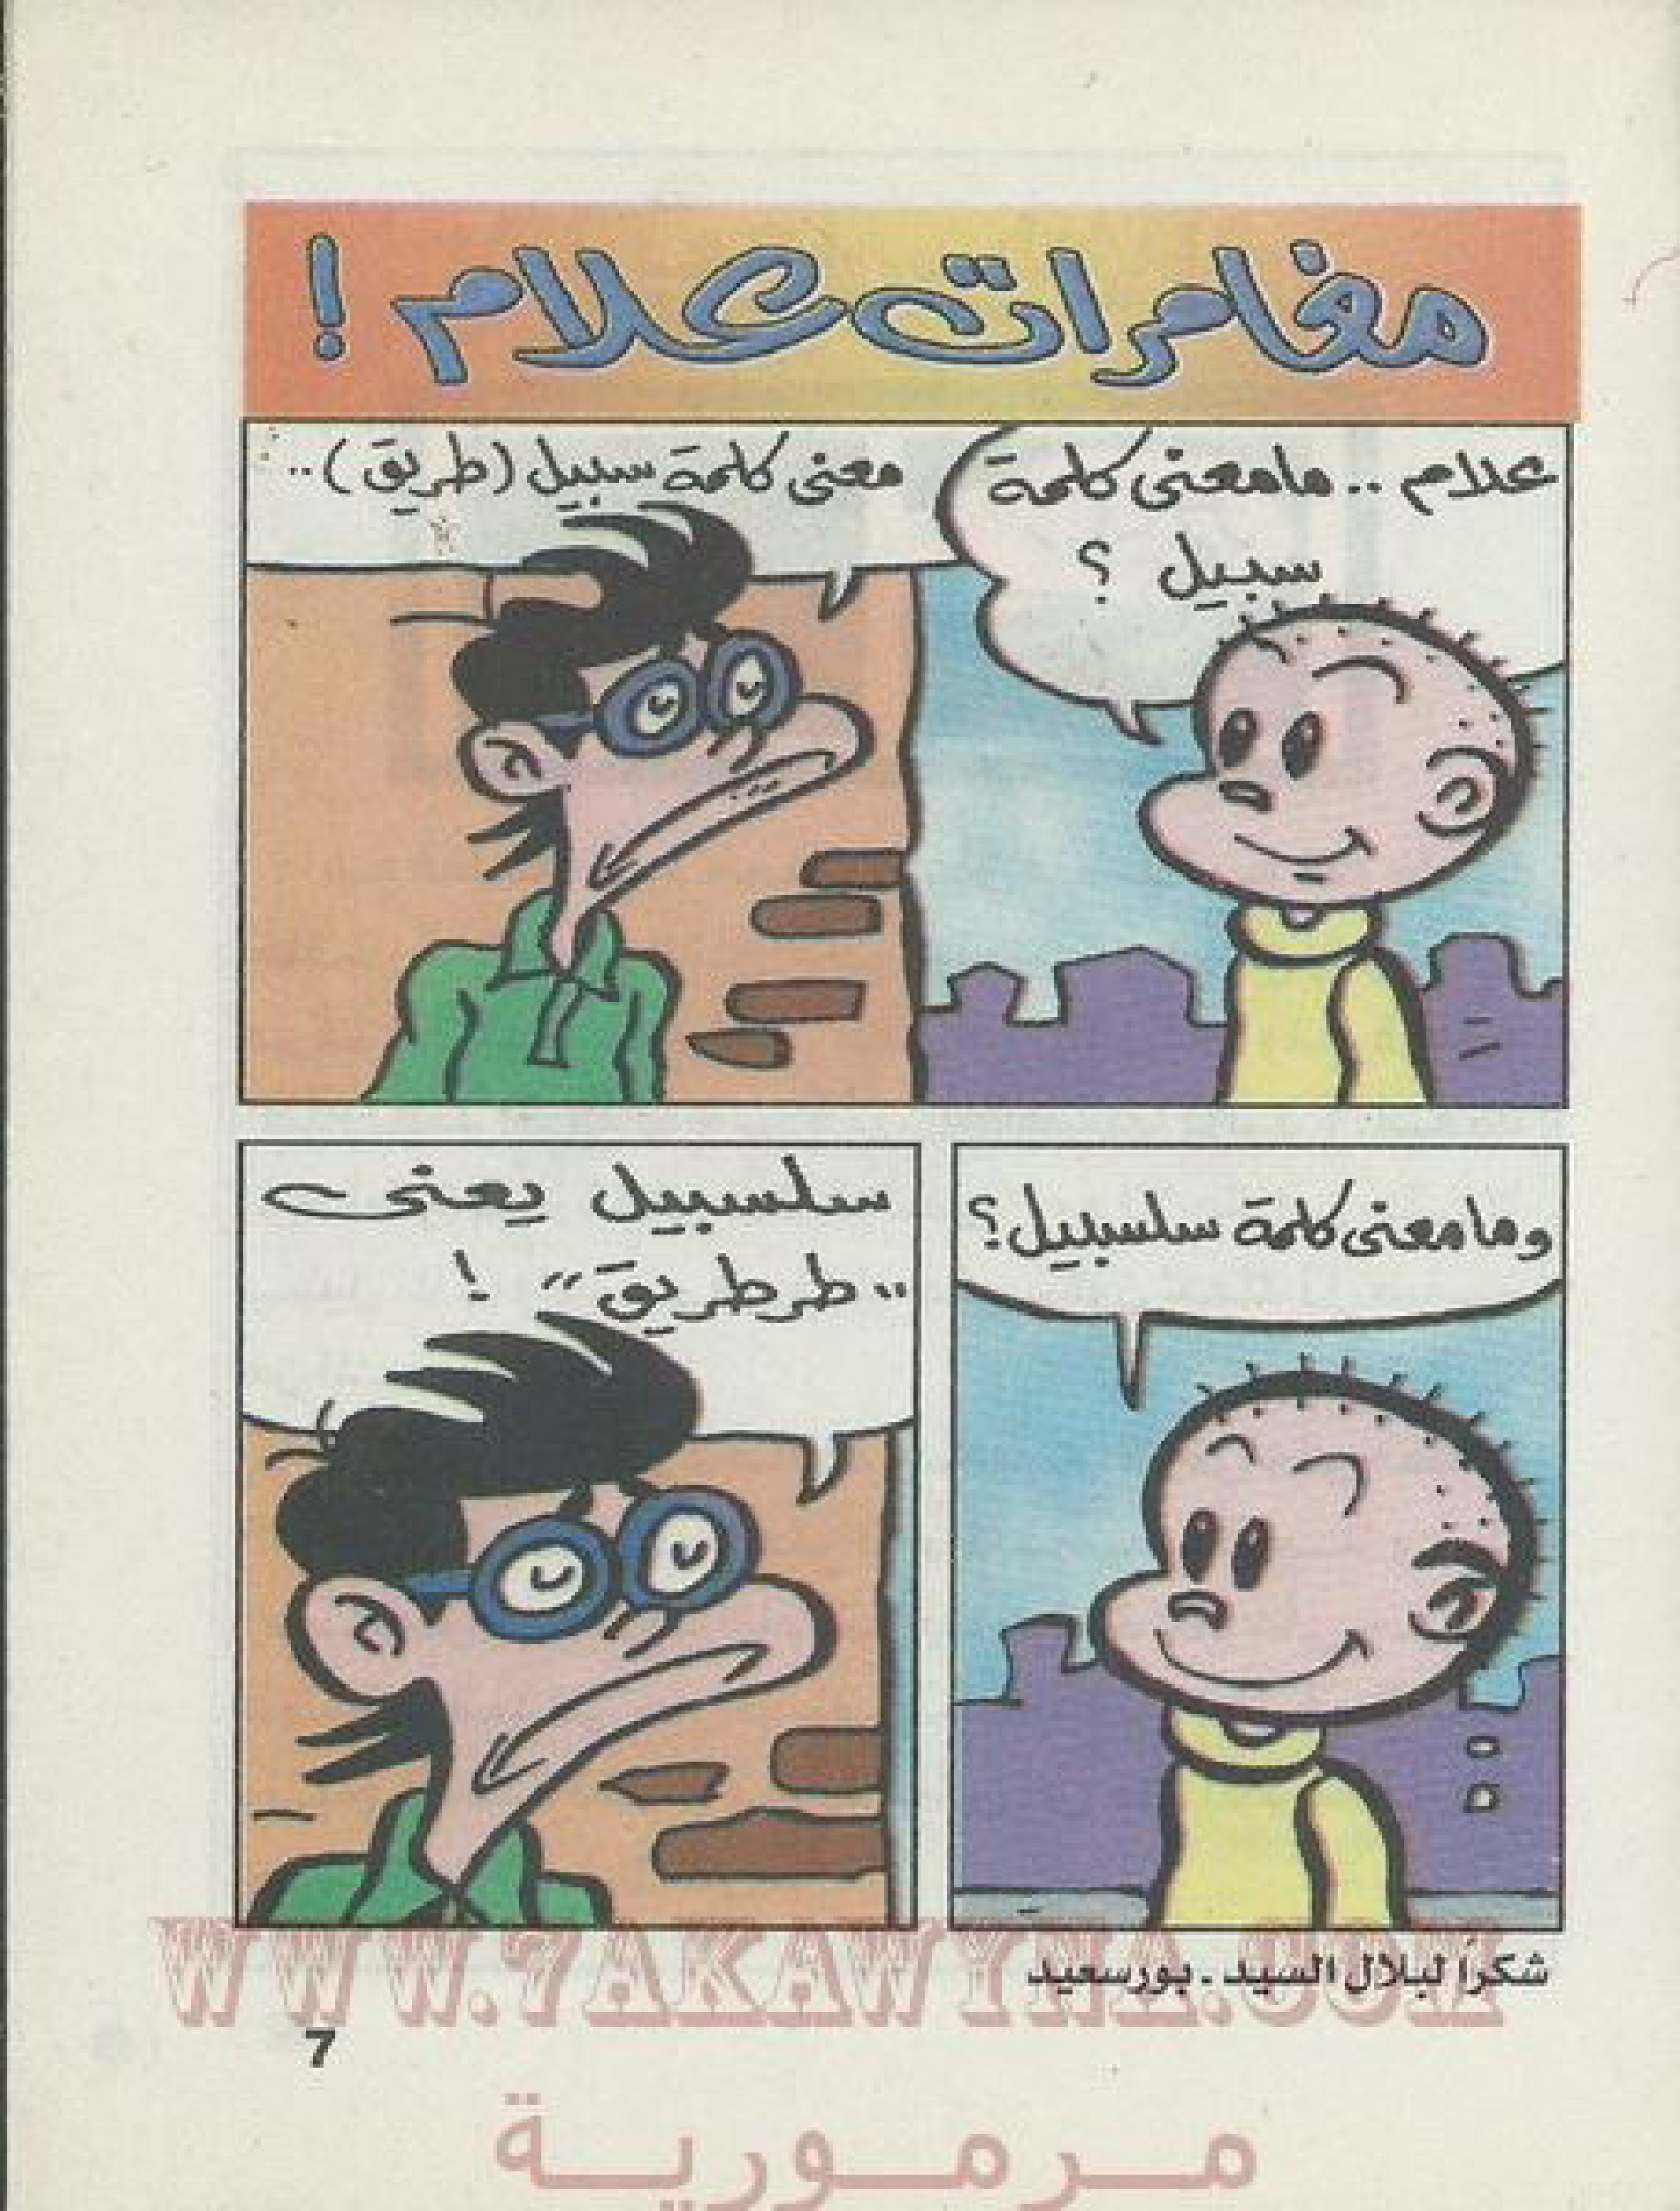 مغامرات علام !
علام .. مامعنى كلمة
سبيل ؟
معنى كلمة سبيل (طريق) ..
ومامعنى كلمة سلسبيل؟
سلسبيل يعنى
"طرطريق" !
شكراً لبلال السيد . بورسعيد
WWW.7AKAWYNA.COM
7
مرمورية